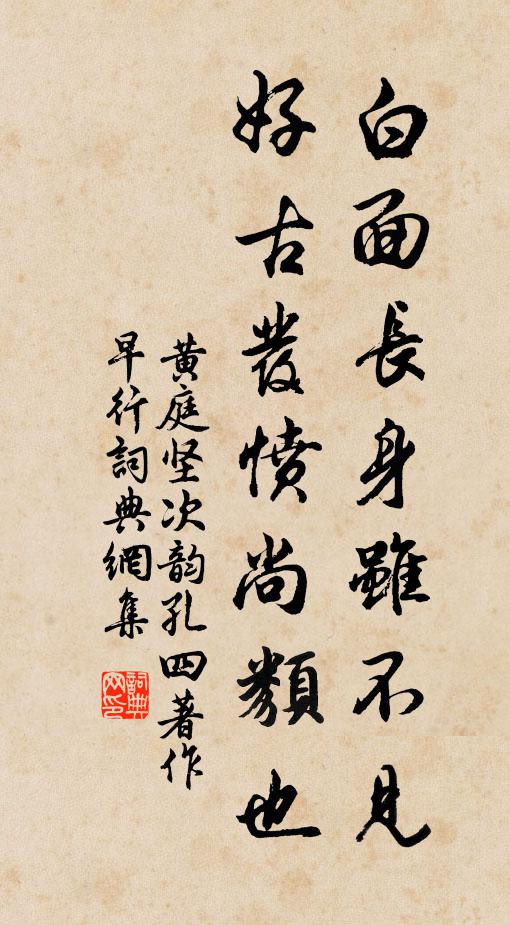 白面長身雖不見
好古發憤尚類也
黄庭坚次韵孔四著作
早行詞典網集
詞典網印